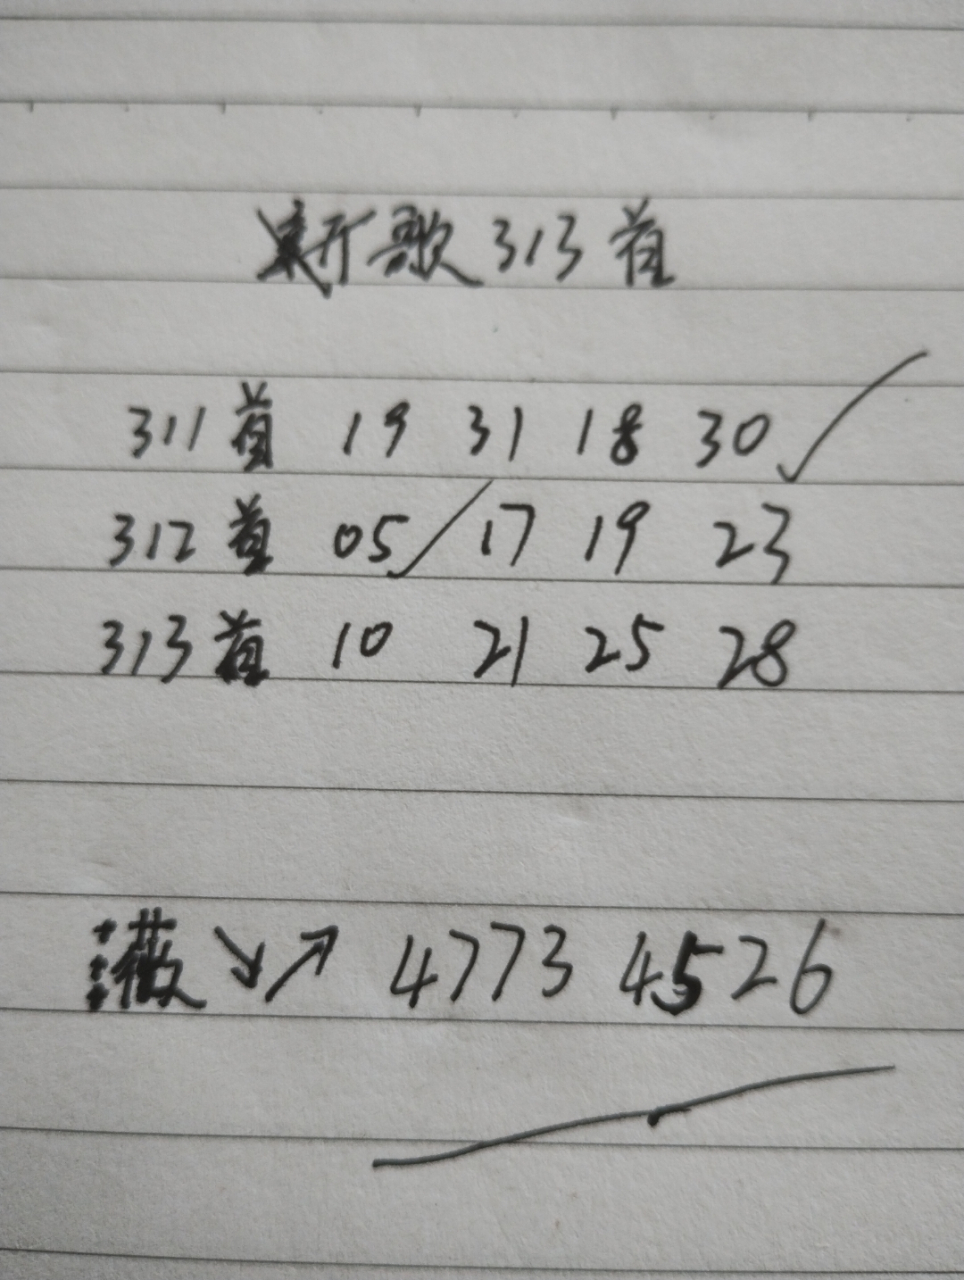 新歌 313 首
311 首 19 31 18 30
312 首 05 17 19 23
313 首 10 21 25 28
薇 ↘↗ 4773 4526